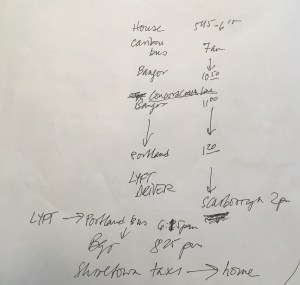 House 5:45-6
Caribou bus 7am
Bangor 10:50
Concord Coach Line
Bangor 11:00
Portland 1:20
LYFT
DRIVER Scarborough 2pm
LYFT → Portland bus 6:15pm
Bgr 8:25 pm
Shoretown taxi → home